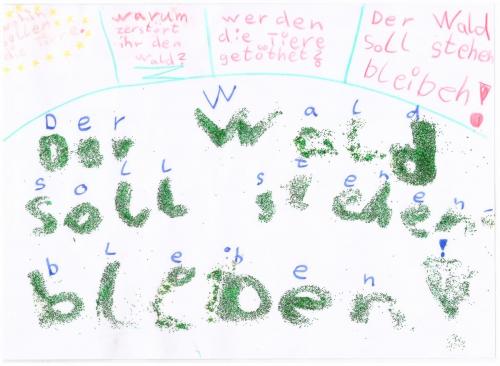 die Tiere.
warum
zerstört
ihr den
Wald?
werden
die Tiere
getöthet?
Der Wald
soll stehen
bleiben!
Der Wald
Der Wald
soll stehen-
soll stehen-
bleiben!
bleiben!